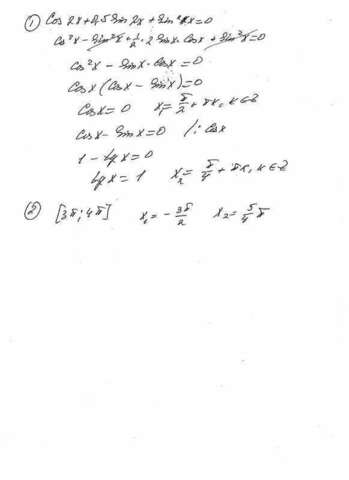 ① Cos 2x + 0,5 sin 2x + sin²x = 0
cos²x - sin²x + 1/2 · 2 sinx · cosx + sin²x = 0
cos²x - sinx · cosx = 0
cosx (cosx - sinx) = 0
cosx = 0 x₁ = π/2 + πk, k∈Z
cosx - sinx = 0 /: cosx
1 - tgx = 0
tgx = 1 x₂ = π/4 + πk, k∈Z
② [3π; 4π] x₁ = - 3π/2 x₂ = 5/4 π